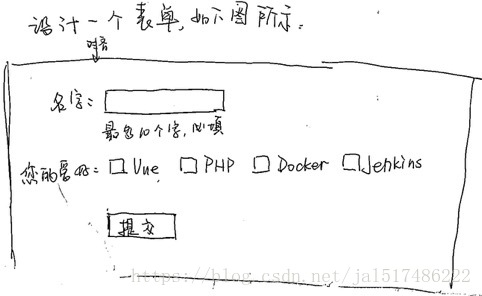 设计一个表单，如下图所示。
名字：
最多10个字，必填
您的爱好：Vue PHP Docker Jenkins
提交
https://blog.csdn.net/ja1517486222